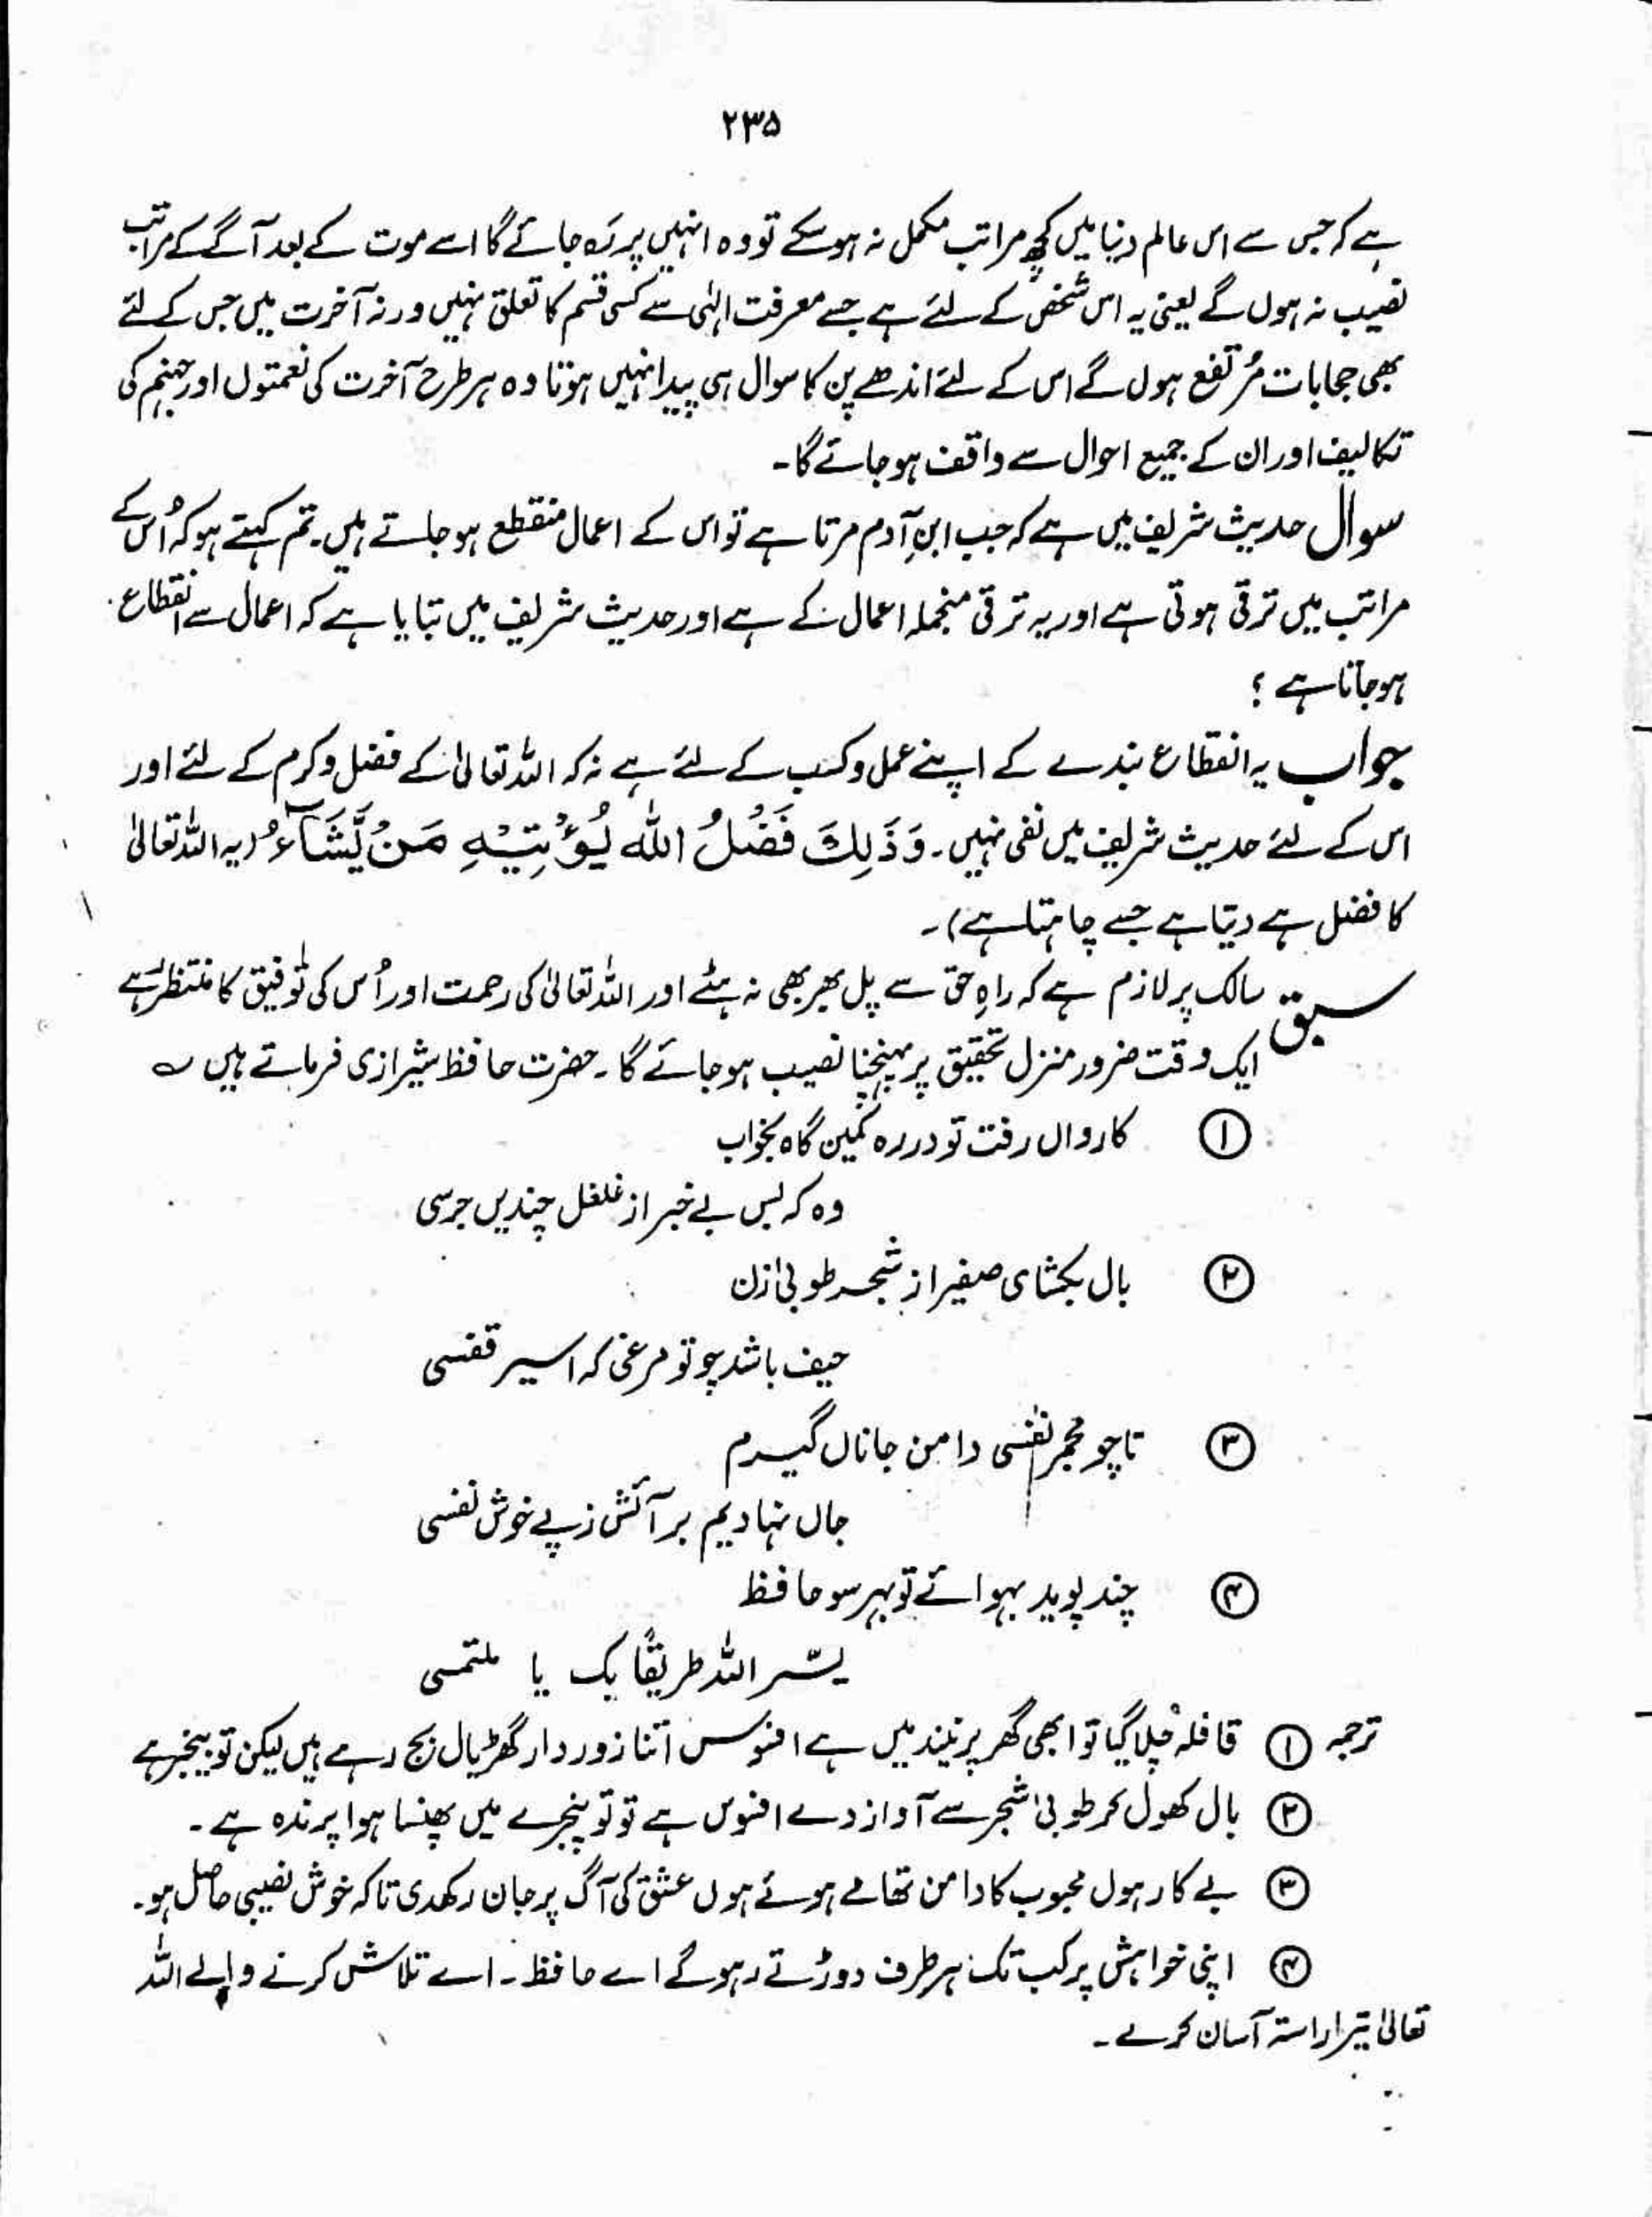 ۲۳۵
ہے کہ جس سے اس عالم دنیا میں کچھ مراتب مکمل نہ ہو سکے تو وہ انہیں پر رہ جائے گا اسے موت کے بعد آگے کے مراتب
نصیب نہ ہوں گے یعنی یہ اس شخص کے لئے ہے جسے معرفت الہٰی سے کسی قسم کا تعلق نہیں ورنہ آخرت میں جس کے لئے
بھی حجابات مُرتفع ہوں گے اس کے لئے اندھے پن کا سوال ہی پیدا نہیں ہوتا وہ ہر طرح آخرت کی نعمتوں اور جہنم کی
تکالیف اور ان کے جمیع احوال سے واقف ہو جائے گا۔
سوال حدیث شریف میں ہے کہ جب ابنِ آدم مرتا ہے تو اس کے اعمال منقطع ہو جاتے ہیں۔ تم کہتے ہو کہ اُس کے
مراتب میں ترقی ہوتی ہے اور یہ ترقی منجملہ اعمال کے ہے اور حدیث شریف میں بتایا ہے کہ اعمال سے انقطاع
ہو جاتا ہے ؟
جواب یہ انقطاع بندے کے اپنے عمل و کسب کے لئے ہے نہ کہ اللہ تعالیٰ کے فضل و کرم کے لئے اور
اس کے لئے حدیث شریف میں نفی نہیں۔ وَذَلِكَ فَضْلُ اللّٰه يُؤْتِيْهِ مَنْ يَّشَآءُ (یہ اللہ تعالیٰ
کا فضل ہے دیتا ہے جسے چاہتا ہے)۔
سبق سالک پر لازم ہے کہ راہِ حق سے پل بھر بھی نہ ہٹے اور اللہ تعالیٰ کی رحمت اور اُس کی توفیق کا منتظر رہے
ایک وقت ضرور منزل تحقیق پر پہنچنا نصیب ہو جائے گا۔ حضرت حافظ شیرازی فرماتے ہیں ؎
① کارواں رفت تو در رہ کمین گاہ بخواب
وہ کہ بس بے خبر از غلغل چندیں جرسی
② بال بکشای صفیر از شجر طوبیٰ زن
حیف باشد چو تو مرغی کہ اسیر قفسی
③ تا چو مجمر نفسی دامن جاناں گیرم
جاں نہادیم بر آتش ز پے خوش نفسی
④ چند پوید بہوائے تو بہر سو حافظ
یسّر اللہ طریقًا بک یا ملتمسی
ترجمہ ① قافلہ چلا گیا تو ابھی گھر پر نیند میں ہے افسوس اتنا زور دار گھڑیال بج رہے ہیں لیکن تو بیخبر ہے
② بال کھول کر طوبیٰ شجر سے آواز دے افسوس ہے تو تو پنجرے میں پھنسا ہوا پرندہ ہے۔
③ بے کار ہوں محبوب کا دامن تھامے ہوئے ہوں عشق کی آگ پر جان رکھدی تاکہ خوش نصیبی حاصل ہو۔
④ اپنی خواہش پر کب تک ہر طرف دوڑتے رہو گے اے حافظ۔ اے تلاش کرنے والے اللہ
تعالیٰ تیرا راستہ آسان کرے۔